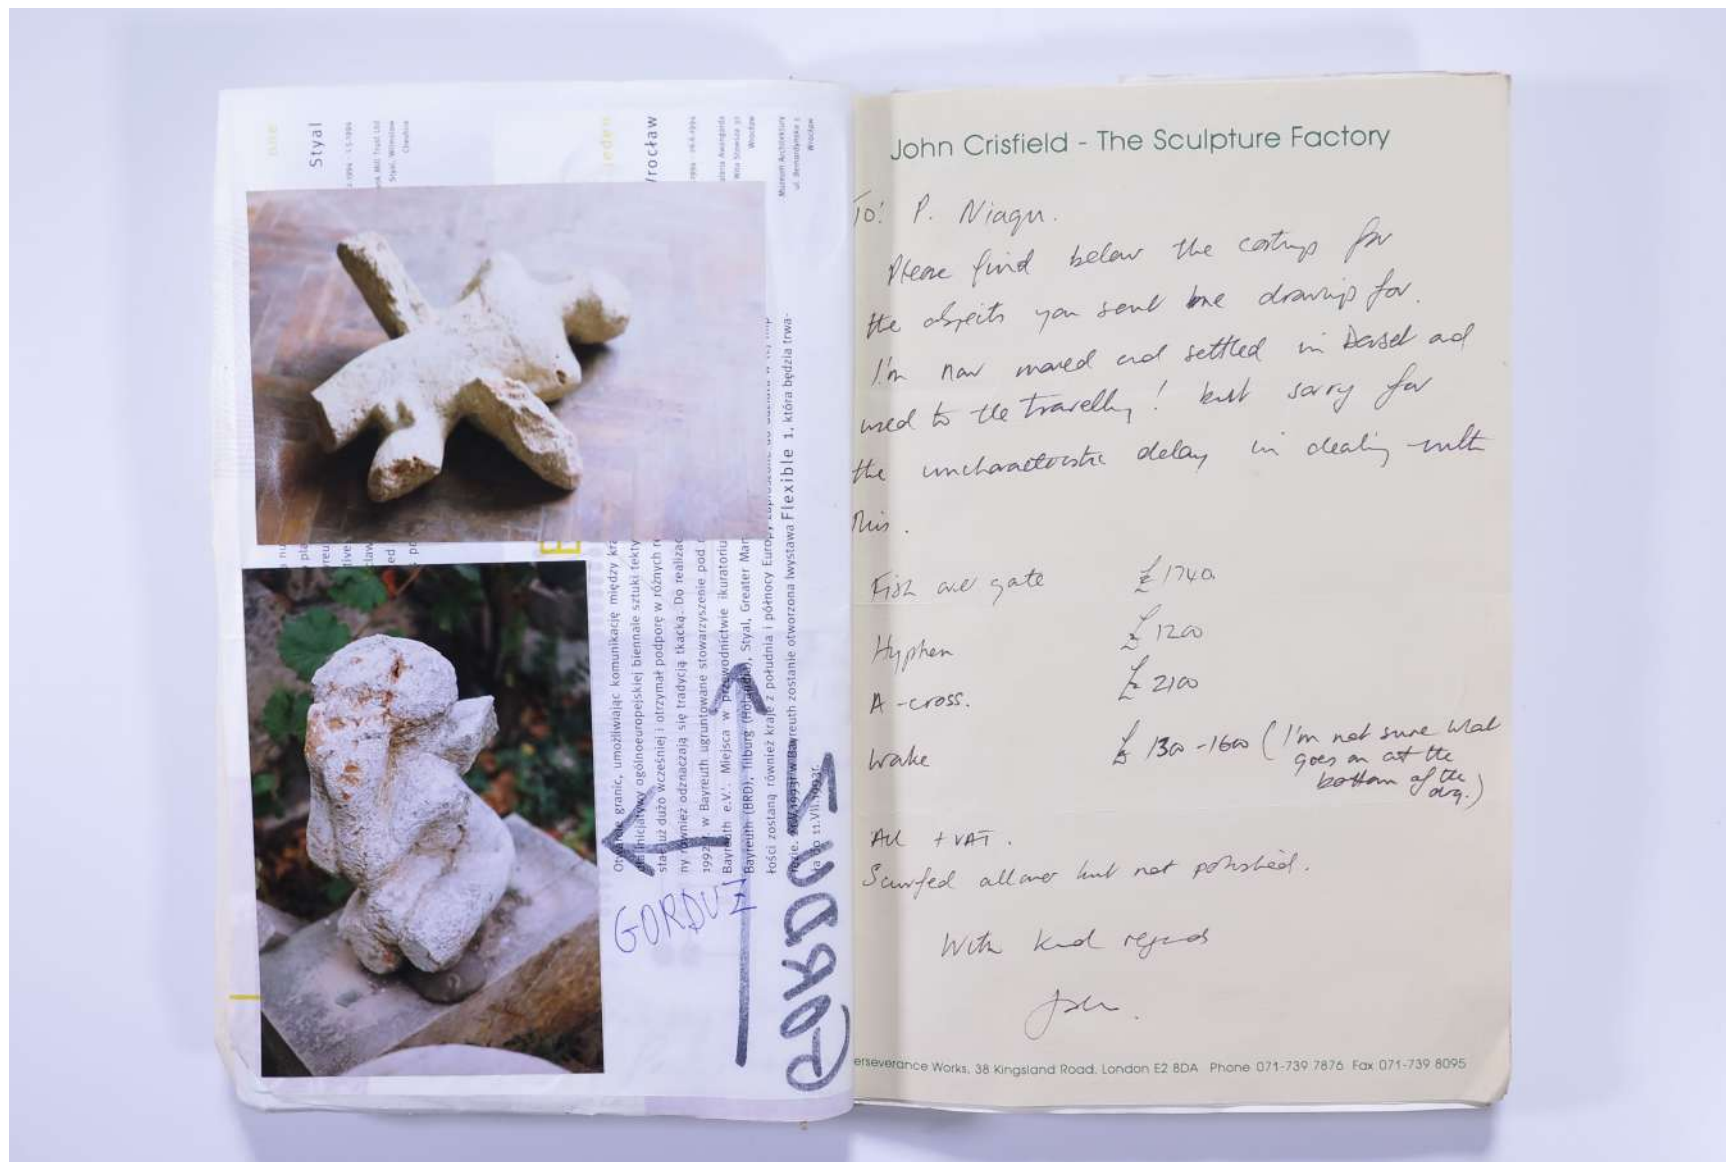 Styal
Cheshire
jeden
Wrocław
Wrocław
Muzeum Architektury
ul. Bernardyńska 5
Wrocław
Otwarcie granic, umożliwiając komunikację między
inicjatywy ogólnoeuropejskiej biennale sztuki
już dużo wcześniej i otrzymał podporę w różnych
ny również odznaczają się tradycją tkacką. Do
w Bayreuth ugruntowane stowarzyszenie pod
Bayreuth e.V.'. Miejsca w przewodnictwie
Bayreuth (BRD), Tilburg (Holandia), Styal, Greater
łości zostaną również kraje z południa i północy
w Bayreuth zostanie otworzona wystawa Flexible 1, która będzia trwa-
11.VII.1993r.
GORDUZ
GORDUZ
John Crisfield - The Sculpture Factory
To: P. Niagu.
Please find below the costings for
the objects you sent me drawings for.
I'm now moved and settled in Dorset and
used to the travelling! but sorry for
the uncharacteristic delay in dealing with
this.
Fish over gate £1740.
Hyphen £1200
A-cross. £2100
Wake £1300-1600 (I'm not sure what
goes on at the
bottom of the
drg.)
All + VAT.
Scurfed all over but not polished.
With kind regards
John.
erseverance Works, 38 Kingsland Road, London E2 8DA Phone 071-739 7876 Fax 071-739 8095